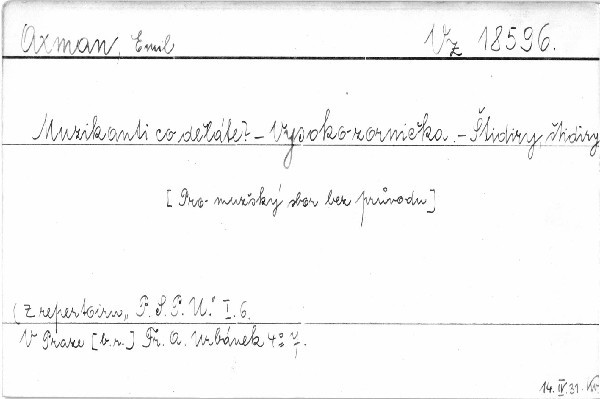 Axman, Emil Vz 18596.
Muzikanti co deláte? - Vysoko zornička. - Štidiry, štidiry
[Pro mužský sbor bez průvodu]
(Z repertoiru „P. S. P. U." I. 6.
V Praze [b. r.] Fr. A. Urbánek 4°
14. IV. 31.